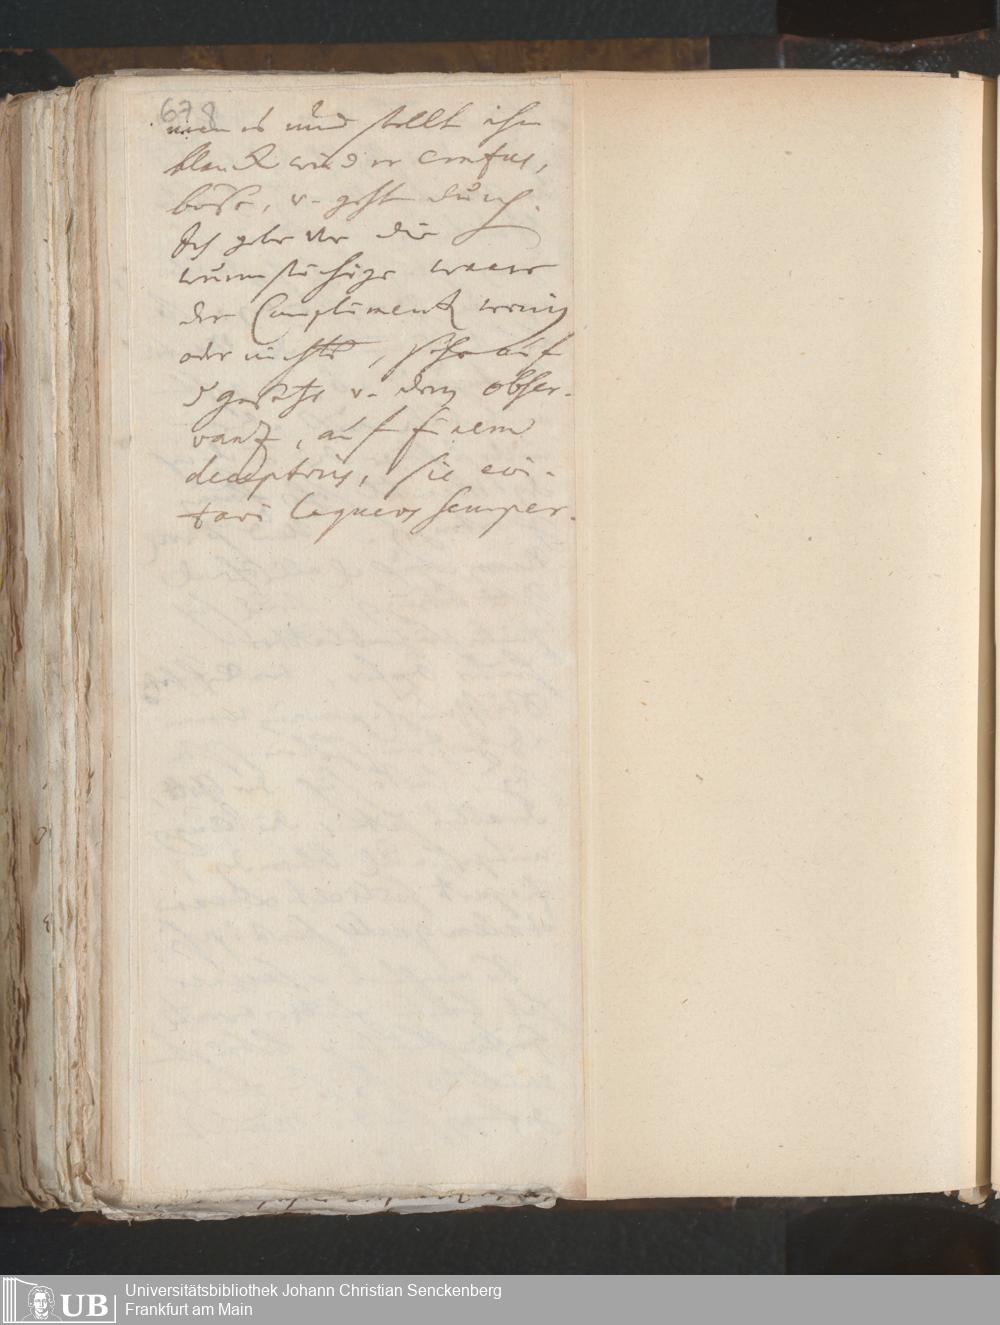 678
man es und stellt ihn
blanck wird er confus,
böse, v. geht durch.
Ich gebe vor die
wurmstichige waare
der Compliment wenig
oder nichts, sehe auf
v. dem obser-
vanz, auf finem
deceptorius, sic evi-
tavi laqueos semper.
UB
Universitätsbibliothek Johann Christian Senckenberg
Frankfurt am Main